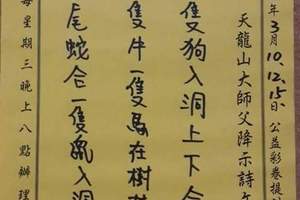 年3月10.12.15日.公益彩卷提
天龍山大師父降示詩
隻狗入洞上下合
隻牛一隻馬在樹
尾蛇合一隻入洞
每星期三晚上八點辦理